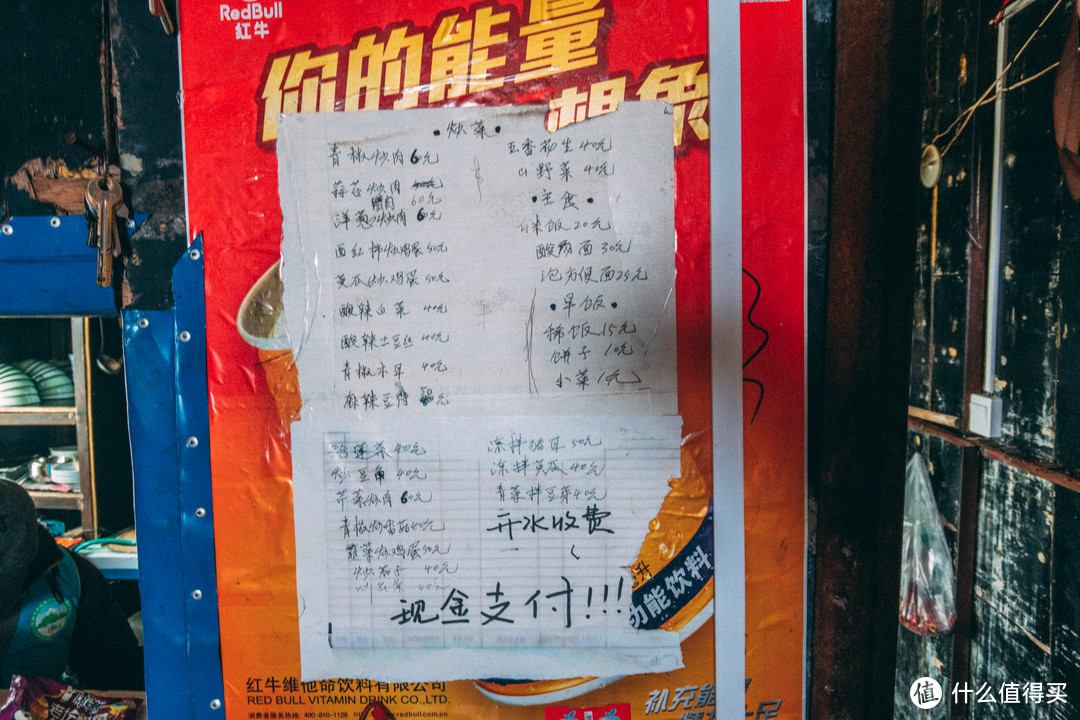 RedBull
红牛
你的能量
想象
•炒菜•
青椒炒肉 60元
蒜苔炒肉
腊肉 60元
洋葱炒肉 60元
西红柿炒鸡蛋50元
黄瓜炒鸡蛋50元
酸辣白菜 40元
酸辣土豆丝 40元
青椒木耳 40元
麻辣豆腐
五香花生40元
山野菜 40元
•主食•
白米饭20元
酸汤面30元
泡方便面25元
•早饭•
稀饭15元
饼子10元
小菜10元
莲菜40元
炒豆角 40元
芹菜炒肉60元
青椒炒香菇40元
韭菜炒鸡蛋50元
炒茄子 40元
40元
凉拌猪耳50元
凉拌黄瓜40元
青菜拌豆芽40元
开水收费
现金支付!!!
功能饮料
红牛维他命饮料有限公司
RED BULL VITAMIN DRINK CO.,LTD.
消费者服务热线: 400-810-1128
www.redbull.com.cn
补充能量
值 什么值得买